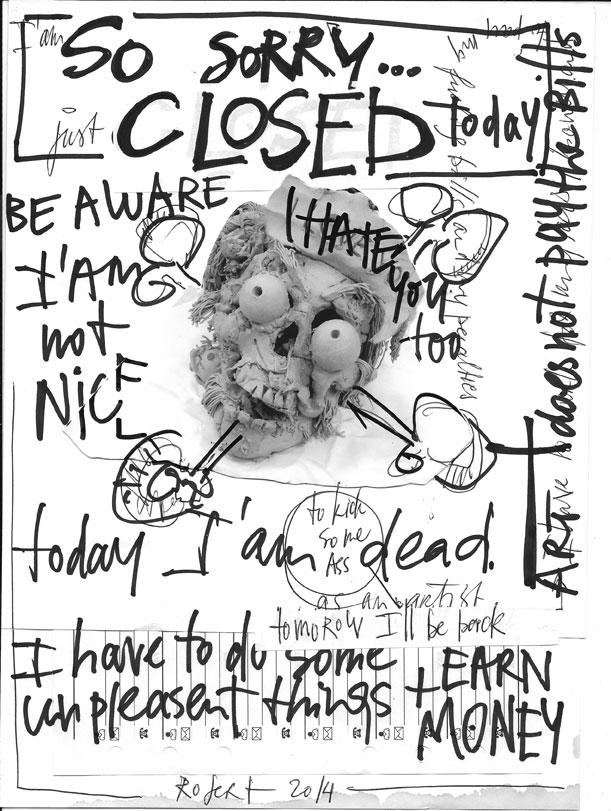 I'am SO SORRY...
just CLOSED today
BE AWARE
I'AM
not
NICE
I HATE
you
too
ART does not pay the Bills
today I'am dead.
to kick
some
Ass
as an artist
tomorow I'll be back
I have to do some
unpleasent things
+ EARN
MONEY